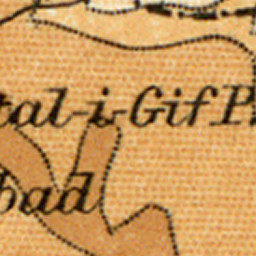 tal-i-Gif P.
bad